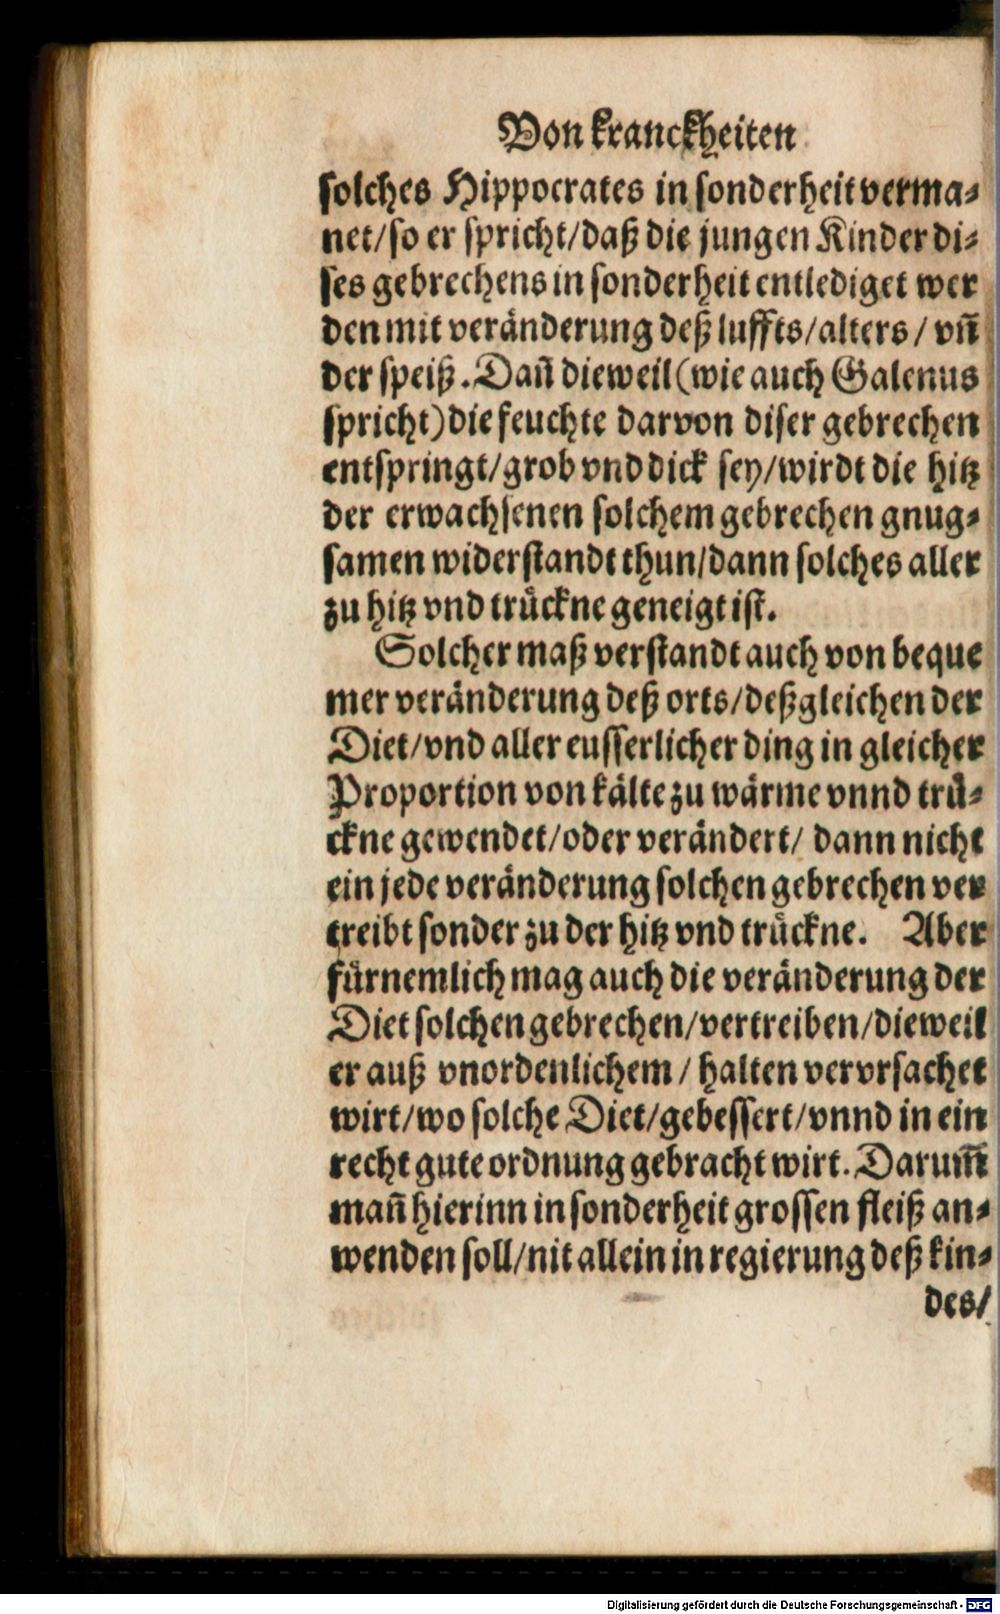 Von kranckheiten
solches Hippocrates in sonderheit verma-
net/so er spricht/daß die jungen Kinder di-
ses gebrechens in sonderheit entlediget wer
den mit veränderung deß luffts/alters/ vñ
der speiß. Dañ dieweil (wie auch Galenus
spricht) die feuchte darvon diser gebrechen
entspringt/grob vnd dick sey/wirdt die hitz
der erwachsenen solchem gebrechen gnug-
samen widerstandt thun/dann solches aller
zu hitz vnd trückne geneigt ist.
Solcher maß verstandt auch von beque
mer veränderung deß orts/deßgleichen der
Diet/vnd aller eusserlicher ding in gleicher
Proportion von kälte zu wärme vnnd trü-
ckne gewendet/oder verändert/ dann nicht
ein jede veränderung solchen gebrechen ver
treibt sonder zu der hitz vnd trückne. Aber
fürnemlich mag auch die veränderung der
Diet solchen gebrechen/vertreiben/dieweil
er auß vnordenlichem / halten vervrsachet
wirt/wo solche Diet/gebessert/vnnd in ein
recht gute ordnung gebracht wirt. Darum̃
mañ hierinn in sonderheit grossen fleiß an-
wenden soll/nit allein in regierung deß kin-
des/
Digitalisierung gefördert durch die Deutsche Forschungsgemeinschaft - DFG